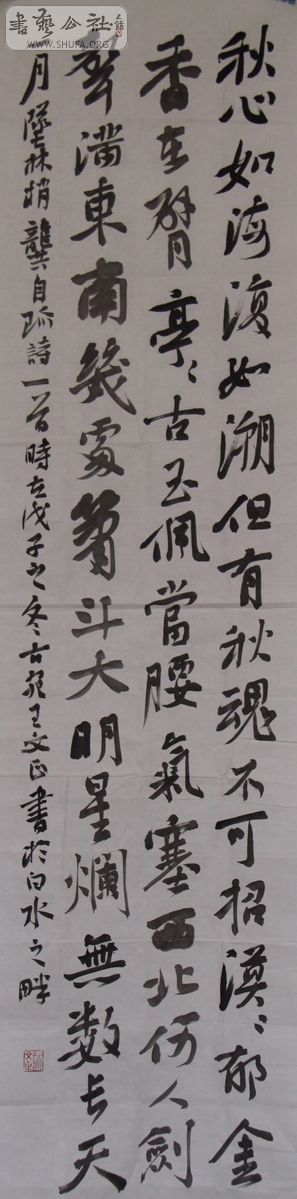 書藝公社
WWW.SHUFA.ORG
秋心如海復如潮但有秋魂不可招漠〻郁金
香在臂亭〻古玉佩當腰氣塞西北何人劍
聲滿東南幾處簫斗大明星爛無數長天
月墜林梢龔自珍詩一首時在戊子之冬古王文正書於白水之畔